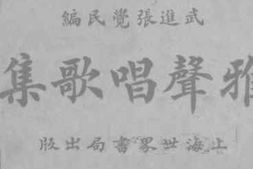 武進張覺民編
雅聲唱歌集
上海世界書局出版